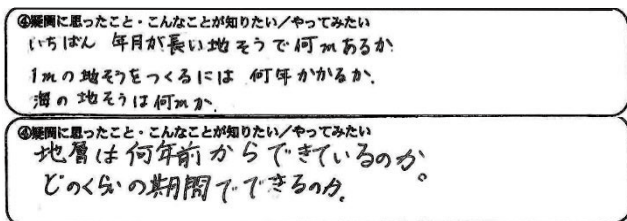 ④疑問に思ったこと・こんなことが知りたい／やってみたい
いちばん 年月が長い地そうで何mあるか
1mの地そうをつくるには 何年かかるか.
海の地そうは何mか.
④疑問に思ったこと・こんなことが知りたい／やってみたい
地層は何年前からできているのか。
どのくらいの期間でできるのか.